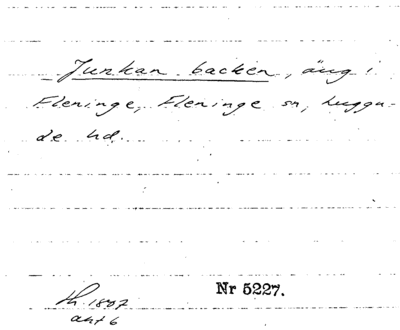 Junkan backen, äng i
Fleninge, Fleninge sn, Luggu-
de hd.
Nr 5227.
1807
akt 6